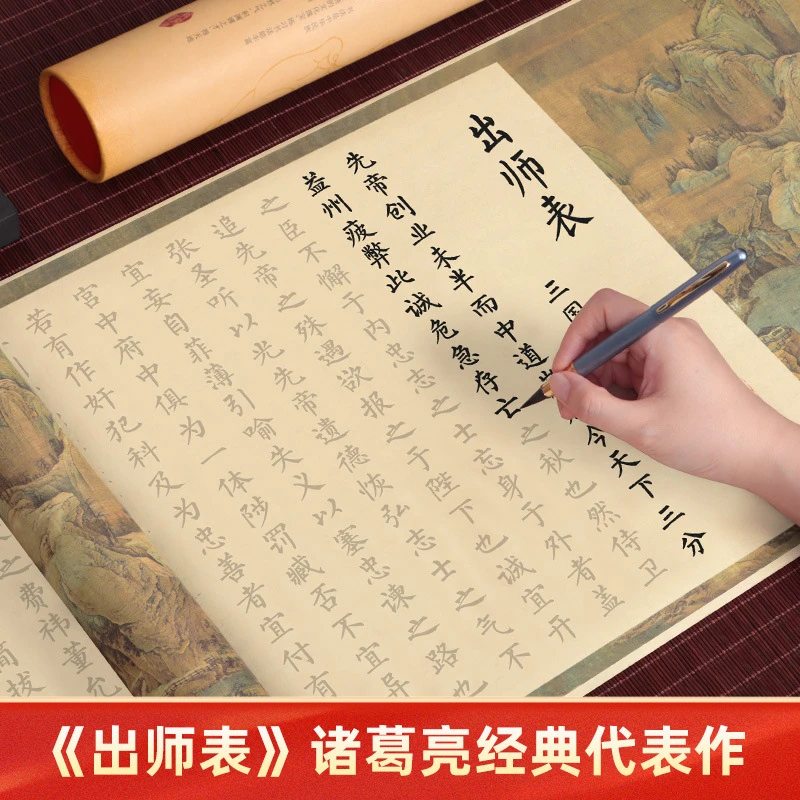 出师表
三国
先帝创业未半而中道
今天下三分
益州疲弊此诚危急存亡之秋也然侍卫
之臣不懈于内忠志之士忘身于外者盖
追先帝之殊遇欲报之于陛下也诚宜开
张圣听以光先帝遗德恢弘志士之气不
宜妄自菲薄引喻失义以塞忠谏之路也
宫中府中俱为一体陟罚臧否不宜异
若有作奸犯科及为忠善者宜付有
之费祎董允
简拔
《出师表》诸葛亮经典代表作